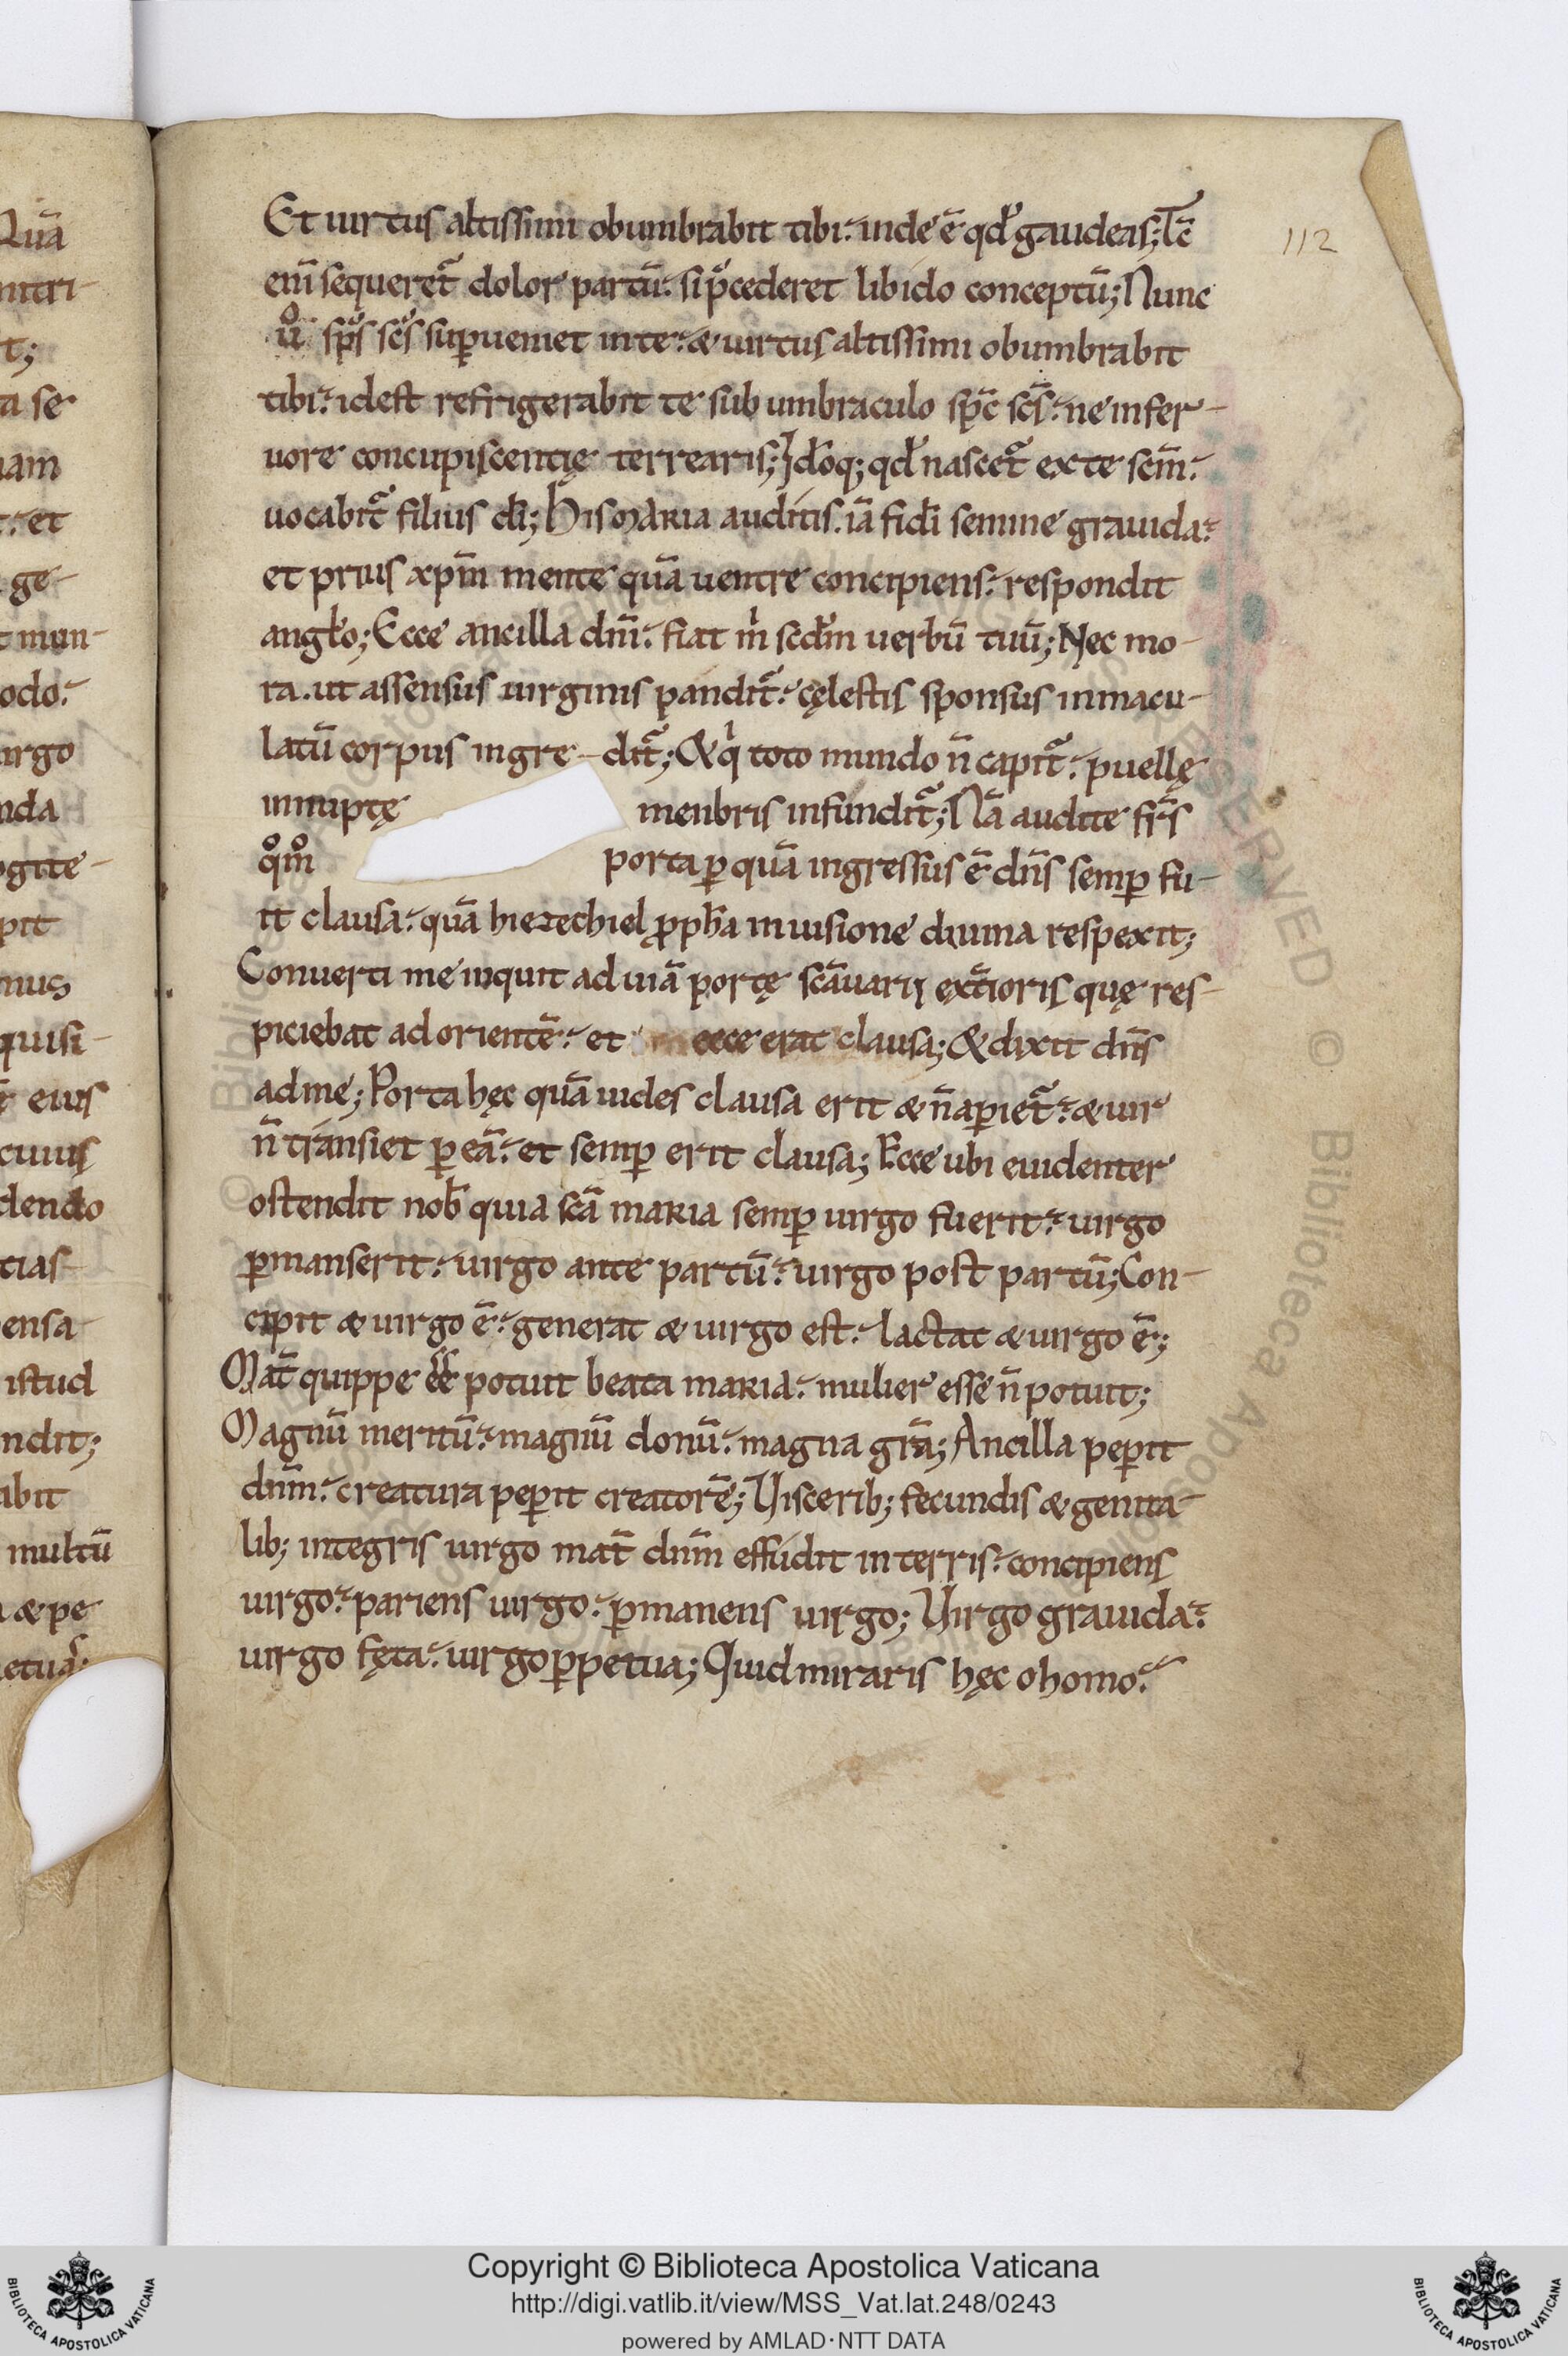 Quā
112
Et uirtus altissimi obumbrabit tibi. inde ē qđ gaudeas; Tc̄
enī sequeret̄ dolor partū. si p̄cederet libido conceptū; Nunc
ů sp̄s sc̄s sup̱ueniet in te. & uirtus altissimi obumbrabit
tibi. idest refrigerabit te sub umbraculo sp̄c sc̄s. ne in fer-
uore concupiscentię terrearis; Iđoq; qđ nascet̄ ex te sc̄m.
uocabit̄ filius dī; His MARIA auditis. iā fidī semine grauida.
et prius xp̄m mente quā uentre concipiens. respondit
angło; Ecce ancilla dnī. fiat m̄ scđm uerbū tuū; Nec mo-
ra. ut assensus uirginis pandit̄. cęlestis sponsus inmacu-
latū corpus ingre-dit̄; & q̍ toto mundo n̄ capit̄. puellę
innuptę menbris infundit̄; Nā audite fr̄s
q̊m̊ porta p̱ quā ingressus ē dn̄s semp̱ fu-
it clausa. quā hiezechiel p̱ph̄a in uisione diuina respexit;
Conuerti me inquit ad uiā portę sc̄auarii ext̄ioris quę res-
piciebat ad orientē. et ecce erat clausa; & dixit dn̄s
ad me; Porta hęc quā uides clausa erit & n̄ ap̱iet̄. & uir
n̄ transiet p̱ eā. et semp̱ erit clausa; Ecce ubi euidenter
ostendit nob̄ quia sc̄a MARIA semp̱ uirgo fuerit. uirgo
p̱manserit. uirgo ante partū. uirgo post partū; Con-
cipit & uirgo ē. generat & uirgo est. lactat & uirgo ē;
Mat̄ quippe ēē potuit beata MARIA. mulier esse n̄ potuit;
Magnū meritū. magnū donū. magna gr̄a; Ancilla pep̱it
dn̄m. creatura pep̱it creatorē; Uiscerib; fecundis & genita-
lib; integris uirgo mat̄ dn̄m effudit in terris. concipiens
uirgo. pariens uirgo. p̱manens uirgo; Uirgo grauida.
uirgo fęta. uirgo p̱petua; Quid miraris hęc o homo.
Copyright © Biblioteca Apostolica Vaticana
http://digi.vatlib.it/view/MSS_Vat.lat.248/0243
powered by AMLAD·NTT DATA